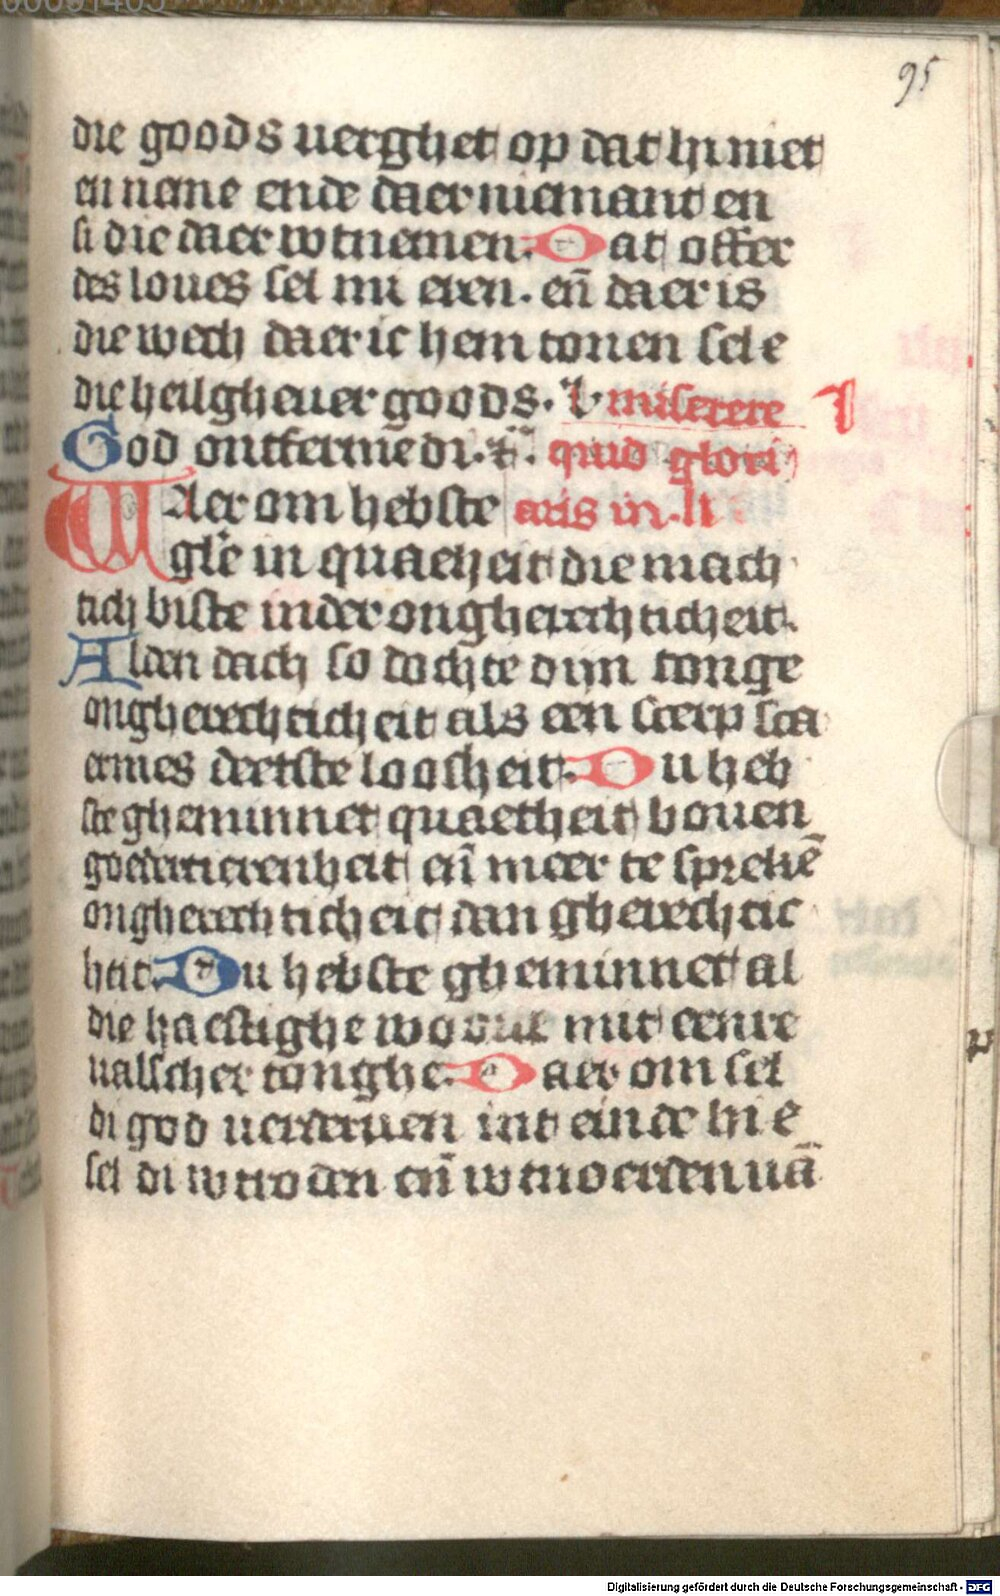 95
die goods uerghet op dat hi niet
en neme ende daer niemant en
si die daer wt nemen. Dat offer
des loues sel mi eren. en̄ daer is
die wech daer ic hem tonen sel e
die heilgheuer goods. miserere
God ontferme di. quid glori
WAer om hebste aris in
gl'e in quaeheit die mach
tich biste inder ongherechticheit.
Alden dach so dochte dijn tonge
ongherechticheit als een scerp sca
ermes deetste loosheit. Du heb
ste gheminnet quaetheit bouen
goedertierenheit en̄ meer te sprekē
ongherechticheit dan gherechtic
heit. Du hebste gheminnet al
die haestighe woorde mit eenre
ualscher tonghe. Daer om sel
di god uerderuen int einde hi e
sel di wtroden en̄ wtwoerden uā
Digitalisierung gefördert durch die Deutsche Forschungsgemeinschaft - DFG